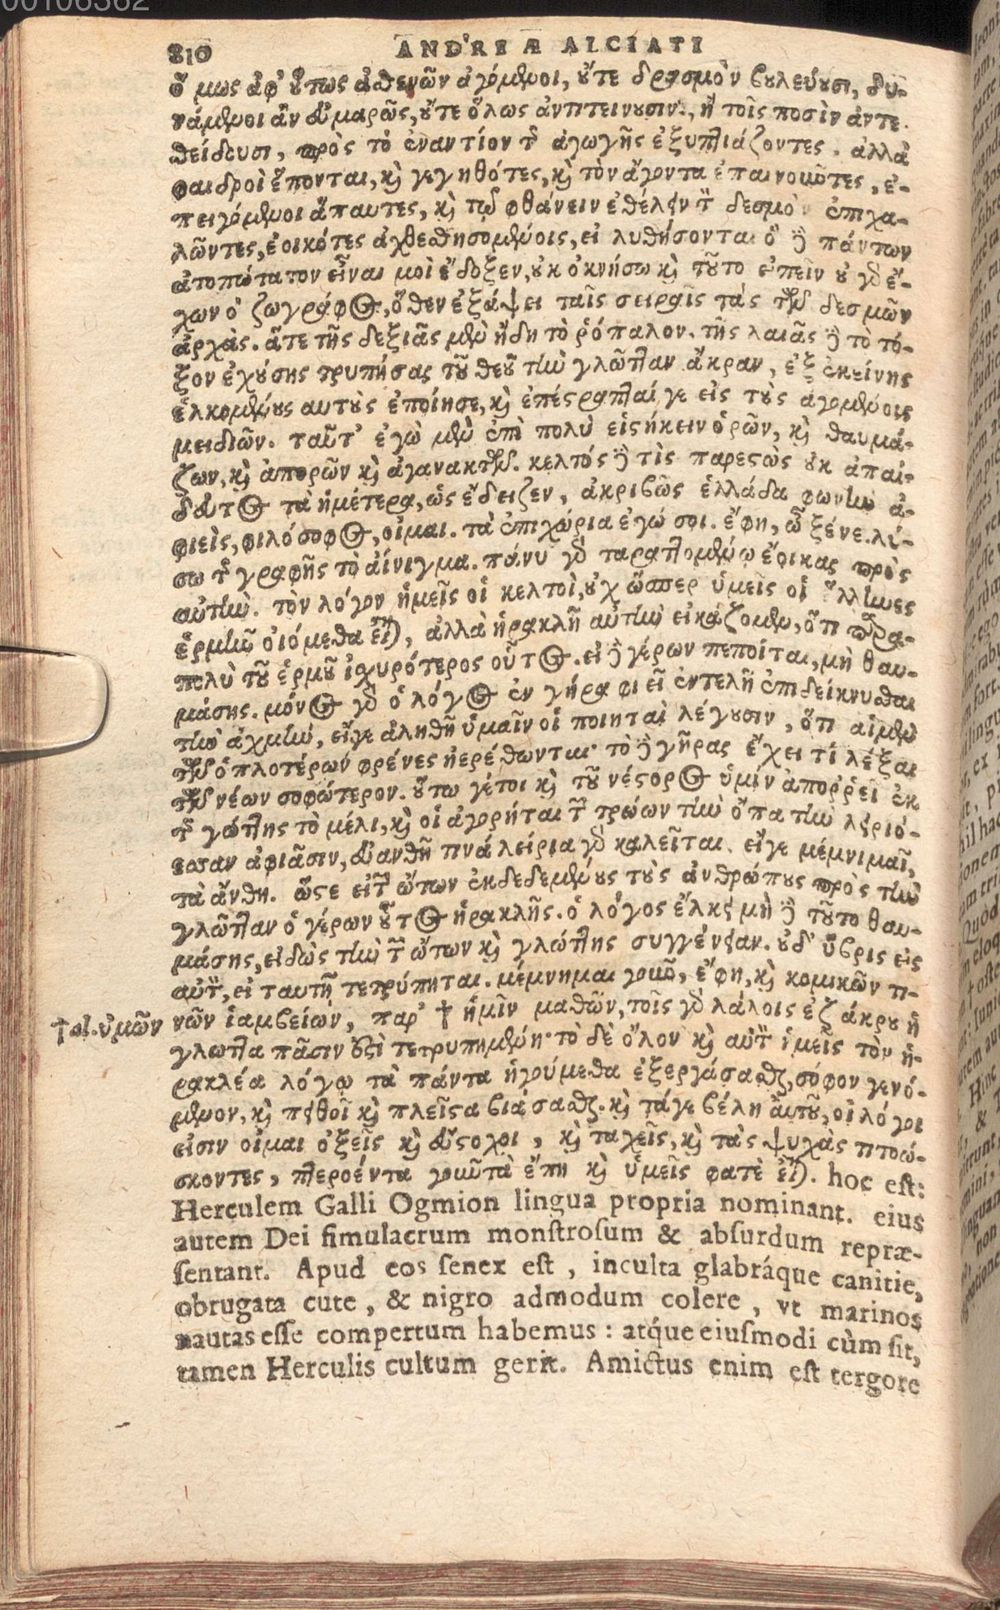 00106362
810 ANDREÆ ALCIATI
ὅ μως ἀφ' οὕτως ἀσθενῶν ἀγόμενοι, οὔτε δρασμὸν βουλεύουσι, δυ-
νάμενοι ἂν εὐμαρῶς, οὔτε ὅλως ἀντιτείνουσιν, ἢ τοῖς ποσὶν ἀντε-
ρείδουσι, πρὸς τὸ ἐναντίον τῆς ἀγωγῆς ἐξυπτιάζοντες. ἀλλὰ
φαιδροὶ ἕπονται, καὶ γεγηθότες, καὶ τὸν ἄγοντα ἐπαινοῦντες, ἐ-
πειγόμενοι ἅπαντες, καὶ τῷ φθάνειν ἐθέλειν τὸν δεσμὸν ἐπιχα-
λῶντες, ἐοικότες ἀχθεσθησομένοις, εἰ λυθήσονται. ὃ δὲ πάντων
ἀτοπώτατον εἶναί μοι ἔδοξεν, οὐκ ὀκνήσω καὶ τοῦτο εἰπεῖν οὐ γὰρ ἔ-
χων ὁ ζωγράφος, ὅθεν ἐξάψει ταῖς σειραῖς τὰς τῶν δεσμῶν
ἀρχὰς. ἅτε τῆς δεξιᾶς μὲν ἤδη τὸ ῥόπαλον. τῆς λαιᾶς δὲ τὸ τό-
ξον ἐχούσης τρυπήσας τοῦ θεοῦ τὴν γλῶτταν ἄκραν, ἐξ ἐκείνης
ἑλκομένους αὐτοὺς ἐποίησε, καὶ ἐπέστραπταί γε εἰς τοὺς ἀγομένους
μειδιῶν. ταῦτ' ἐγὼ μὲν ἐπὶ πολὺ εἱστήκειν ὁρῶν, καὶ θαυμά-
ζων, καὶ ἀπορῶν καὶ ἀγανακτῶν. κελτός δὲ τις παρεστὼς οὐκ ἀπαί-
δευτος τὰ ἡμέτερα, ὡς ἔδειξεν, ἀκριβῶς ἑλλάδα φωνὴν ἀ-
φιεὶς, φιλόσοφος, οἶμαι. τὰ ἐπιχώρια ἐγώ σοι. ἔφη, ὦ ξένε. λύ-
σω τῆς γραφῆς τὸ αἴνιγμα. πάνυ γὰρ ταραττομένῳ ἔοικας πρὸς
αὐτήν. τὸν λόγον ἡμεῖς οἱ κελτοὶ, οὐχ ὥσπερ ὑμεῖς οἱ ἕλληνες
ἑρμῆν οἰόμεθα εἶναι, ἀλλὰ ἡρακλῆ αὐτὴν εἰκάζομεν, ὅτι παρα-
πολὺ τοῦ ἑρμοῦ ἰσχυρότερος οὗτος. εἰ δὲ γέρων πεποίται, μὴ θαυ-
μάσῃς. μόνος γὰρ ὁ λόγος ἐν γήρᾳ φιεῖ ἐντελῆ ἐπιδείκνυσθαι
τὴν ἀχμὴν, εἴγε ἀληθῆ ὑμαῖν οἱ ποιηταὶ λέγουσιν, ὅτι αἱ μὲν
τῶν ὁπλοτέρων φρένες ἠερέθωνται· τὸ δὲ γῆρας ἔχει τὶ λέξαι
τῶν νέων σοφώτερον. οὕτω γέτοι καὶ τοῦ νέστορος ὑμῖν ἀποῤῥεῖ ἐκ
τῆς γώττης τὸ μέλι, καὶ οἱ ἀγορῆται τῶν τρώων τὴν ὄπα τὴν λιριό-
εσσαν ἀφιᾶσιν, εὐανθῆ τινά λείρια γὰρ καλεῖται. εἴγε μέμνιμαι,
τὰ ἄνθη. ὥστε εἰ τῶν ὤτων ἐκδεδεμένους τοὺς ἀνθρώπους πρὸς τὴν
γλῶτταν ὁ γέρων οὗτος ἡρακλῆς. ὁ λόγος ἕλκει μὴ δὲ τοῦτο θαυ-
μάσῃς, εἰδὼς τὴν τῶν ὤτων καὶ γλώττης συγγένειαν. οὐδ' ὕβρις εἰς
αὐτὸν, εἰ ταυτῇ τετρύπηται. μέμνημαι γοῦν, ἔφη, καὶ κομικῶν τι-
†αἱ. ὑμῶν νῶν ἰαμβείων, παρ' † ἡμῖν μαθῶν, τοῖς γὰρ λάλοις ἐξ ἄκρου ἡ
γλωττα πᾶσιν ἐστὶ τετρυπημένη· τὸ δὲ ὅλον καὶ αὐτὸν ἡμεῖς τὸν ἡ-
ρακλέα λόγῳ τὰ πάντα ἡγούμεθα ἐξεργάσασθαι, σόφον γενό-
μενον, καὶ πειθοῖ καὶ πλεῖστα βιάσασθαι. καὶ τάγε βέλη αὐτοῦ, οἱ λόγοι
εἰσιν οἶμαι ὀξεῖς καὶ εὔστοχοι, καὶ ταχεῖς, καὶ τὰς ψυχὰς πτοώ-
σκοντες, πτεροέντα γοῦν τὰ ἔπη καὶ ὑμεῖς φατὲ εἶναι. hoc est:
Herculem Galli Ogmion lingua propria nominant. eius
autem Dei simulacrum monstrosum & absurdum repræ-
sentant. Apud eos senex est, inculta glabráque canitie,
obrugata cute, & nigro admodum colere, vt marinos
nautas esse compertum habemus: atque eiusmodi cùm sit,
tamen Herculis cultum gerit. Amictus enim est tergore